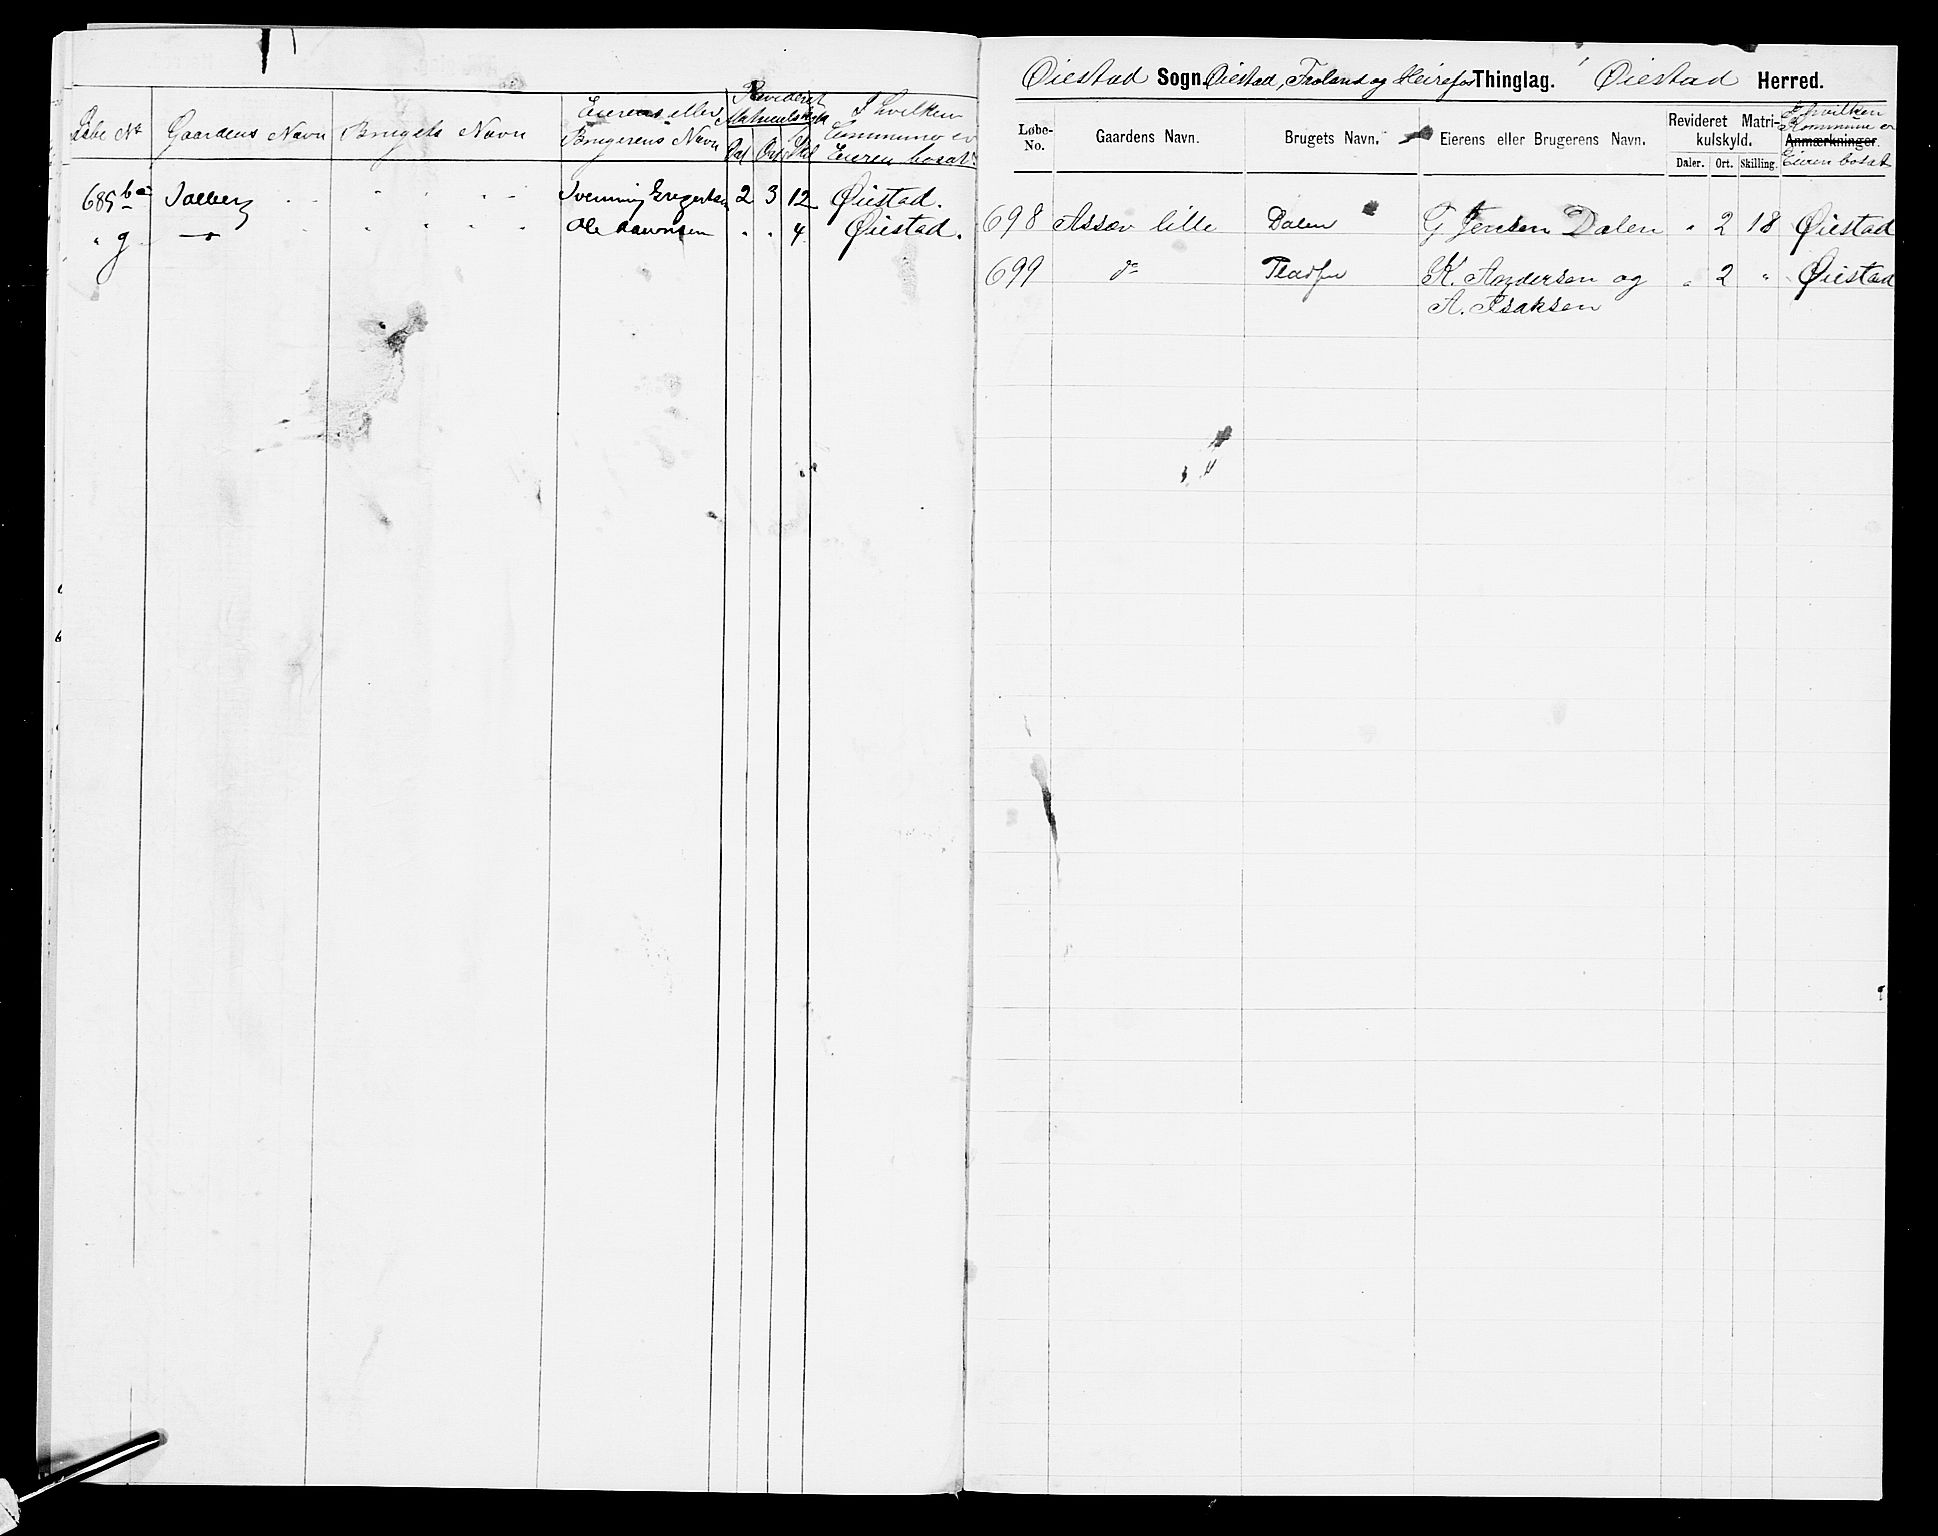 Løbe No Gaardens Navn Brugets Navn Eierens eller Brugerens Navn Revideret Matriculskyld Dal Ort Skil I hvilken Commune er Eieren bosat
685 ba Solberg " " " " " Svenning Gregersen 2 3 12 Øiestad.
" g — " " " " " Ole Aanonsen " " 4 Øiestad.
Øiestad Sogn. Øiestad, Froland og Heirefos Thinglag. Øiestad Herred.
Løbe-No. Gaardens Navn. Brugets Navn. Eierens eller Brugerens Navn. Revideret Matrikulskyld. Daler. Ort. Skilling. Anmærkninger. I hvilken Kommune er Eieren bosat
698 Assev lille Dalen G. Jensen Dalen " 2 18 Øiestad
699 do K. Andersen og " 2 " Øiestad
A. Isaksen